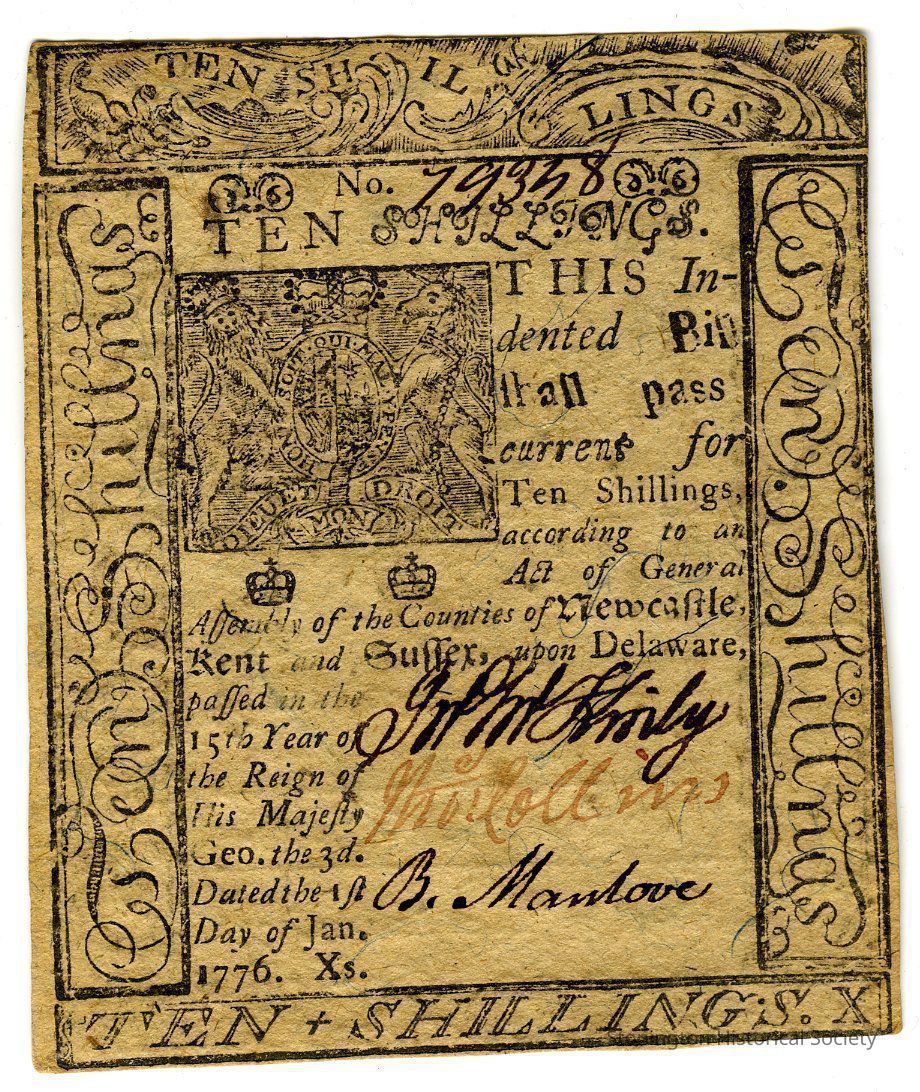 TEN SHILLINGS
No. 79358
TEN SHILLINGS.
THIS In-
dented Bill
ſhall pass
current for
Ten Shillings,
according to an
Act of General
Aſſembly of the Counties of Newcaſtle,
Kent and Suſſex, upon Delaware,
paſſed in the
15th Year of
the Reign of
His Majeſty
Geo. the 3d.
Dated the 1ſt
Day of Jan.
1776. Xs.
HONI SOIT QUI MAL Y PENSE
DIEU ET MON DROIT
Jno McKinly
Thos Collins
B. Manlove
Ten Shillings
Ten Shillings
TEN + SHILLINGS. X
Stonington Historical Society